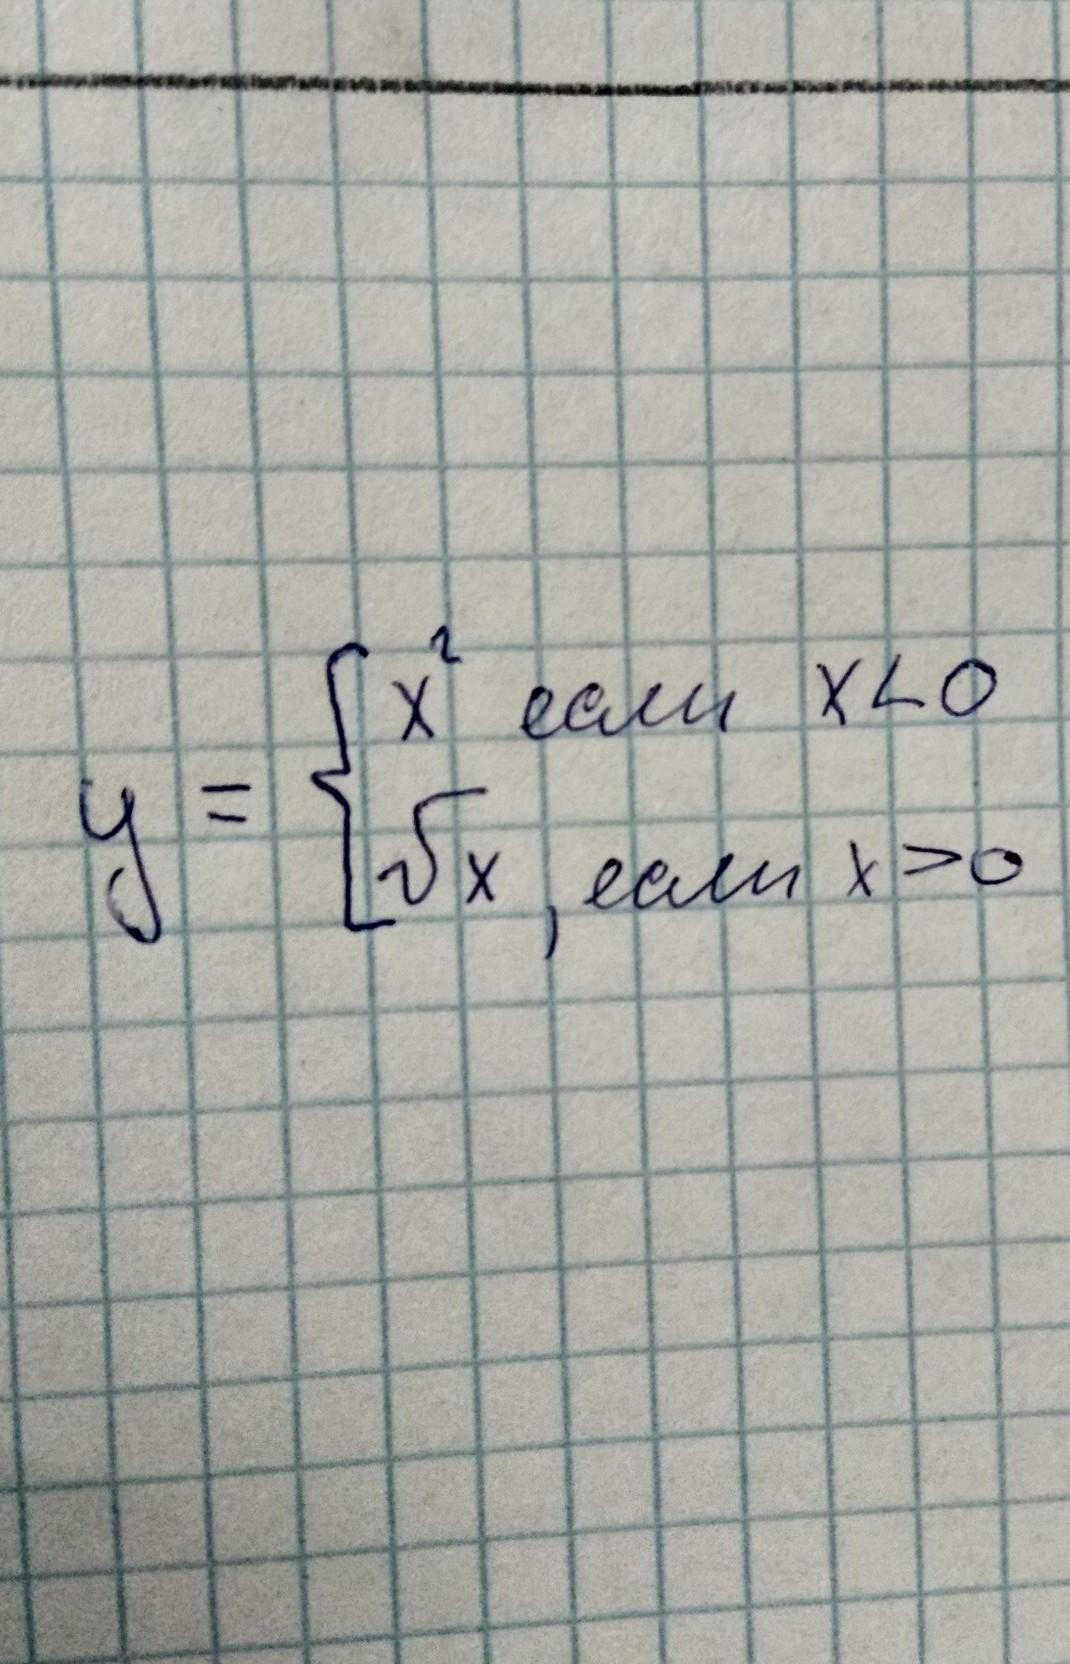 y = { x² если x<0
√x , если x>0